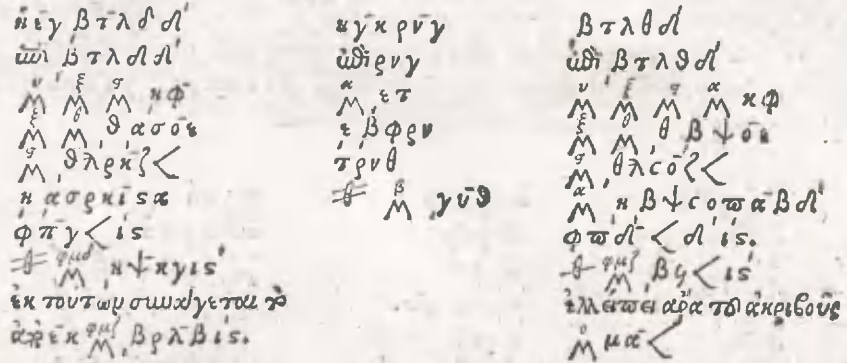 κ̄ε̄γ βτλδ δ'
ἐπὶ βτλδ δ'
υ ξ ϛ
Μ Μ Μ κφ
ξ θ
Μ Μ θασοε
ϛ
Μ θλρκζ<
κ ασρκιϛα
φπγ<ιϛ
φμδ
Μ κψκγιϛ'
ἐκ τούτων συνάγεται τὸ
φμζ
ἀπὸ ε̄κ Μ βρλβιϛ.
κγ κρνγ
ἐπὶ ρνγ
α
Μ ετ
εβφρν
τρνθ
β
Μ γυθ
βτλθ δ'
ἐπὶ βτλθ δ'
υ ξ ϛ α
Μ Μ Μ Μ κφ
ξ θ
Μ Μ θ βψοε
ϛ
Μ θλσοζ<
α
Μ κβψσοπαβδ'
φπδ'<δ'ιϛ.
φμζ
Μ βϟ<ιϛ'
ἐλλείπει ἄρα τοῦ ἀκριβοῦς
ο
Μ μα<